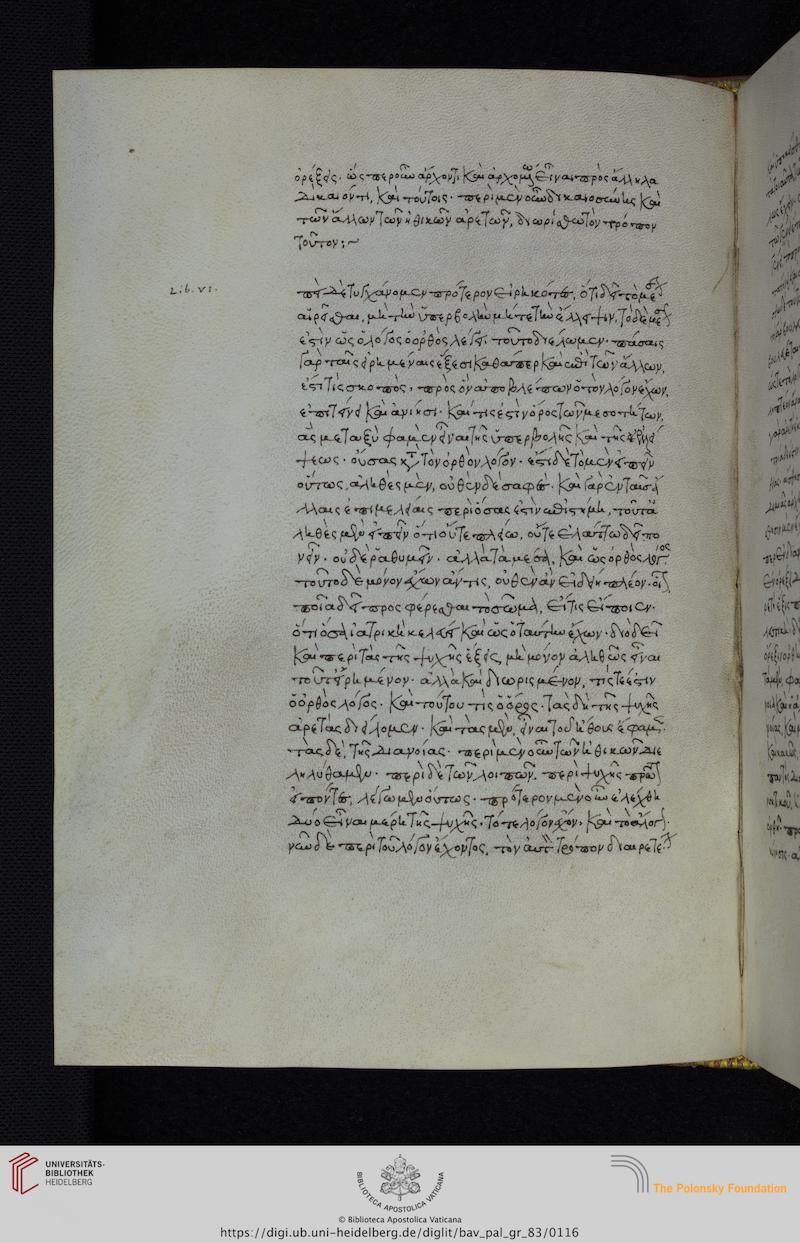 ὀρέξεις. ὡς περ οὖν ἄρχοντι καὶ ἀρχομένῳ εἶναι πρὸς ἄλληλα
δίκαιόν τι, καὶ τούτοις. περὶ μὲν οὖν δικαιοσύνης καὶ
τῶν ἄλλων τῶν ἠθικῶν ἀρετῶν, διωρίσθω τὸν τρόπον
τοῦτον:~
Lib. VI.
ἐπεὶ δὲ τυγχάνομεν πρότερον εἰρηκότες, ὅτι δεῖ τὸ μέσον
αἱρεῖσθαι, μὴ τὴν ὑπερβολὴν μηδὲ τὴν ἔλλειψιν, τὸ δὲ μέσον
ἐστὶν ὡς ὁ λόγος ὁ ὀρθὸς λέγει, τοῦτο διέλωμεν. πάσαις
γὰρ ταῖς εἰρημέναις ἕξεσι καθάπερ καὶ ἐπὶ τῶν ἄλλων,
ἔστι τίς σκοπὸς, πρὸς ὃν ἀποβλέπων ὁ τὸν λόγον ἔχων,
ἐπιτείνει καὶ ἀνίησι. καὶ τίς ἐστὶν ὅρος τῶν μεσοτήτων,
ἃς μεταξύ φαμεν εἶναι τῆς ὑπερβολῆς καὶ τῆς ἐλλεί
ψεως. οὔσας κατὰ τὸν ὀρθὸν λόγον. ἔστι δὲ τὸ μὲν εἰπεῖν
οὕτως, ἀληθὲς μὲν, οὐθὲν δὲ σαφές. καὶ γὰρ ἐν ταῖς ἄ
λλαις ἐπιμελείαις περὶ ὅσας ἐστὶν ἐπιστήμη, τοῦτ' ἀ
ληθὲς μὲν εἰπεῖν ὅτι οὔτε πλείω, οὔτε ἐλάττω δεῖ πο
νεῖν. οὐδὲ ῥαθυμεῖν. ἀλλὰ τὰ μέσα, καὶ ὡς ὁ ὀρθὸς λόγος.
τοῦτο δὲ μόνον ἔχων ἄν τις, οὐθὲν ἂν εἰδείη πλέον. οἷον
ποῖα δεῖ προσφέρεσθαι πρὸς τὸ σῶμα, εἴ τις εἴποιεν.
ὅτι ὅσα ἰατρικὴ κελεύει καὶ ὡς ὁ ταύτην ἔχων. διὸ δεῖ
καὶ περὶ τὰς τῆς ψυχῆς ἕξεις, μὴ μόνον ἀληθῶς εἶναι
τοῦτ' εἰρημένον. ἀλλὰ καὶ διωρισμένον, τίς τέ ἐστιν
ὁ ὀρθὸς λόγος. καὶ τούτου τίς ὁ ὅρος. τὰς δὴ τῆς ψυχῆς
ἀρετὰς διειλόμεν. καὶ τὰς μὲν, εἶναι τοῦ ἤθους ἔφαμεν.
τὰς δὲ, τῆς διανοίας. περὶ μὲν οὖν τῶν ἠθικῶν διε
ληλύθαμεν. περὶ δὲ τῶν λοιπῶν. περὶ ψυχῆς πρῶτον
εἰπόντες, λέγωμεν οὕτως. πρότερον μὲν οὖν ἐλέχθη
δύο εἶναι μέρη τῆς ψυχῆς. τό τε λόγον ἔχον, καὶ τὸ ἄλογον.
νῦν δὲ περὶ τοῦ λόγον ἔχοντος, τὸν αὐτὸν τρόπον διαιρετέον
UNIVERSITÄTS-
BIBLIOTHEK
HEIDELBERG
BIBLIOTECA APOSTOLICA VATICANA
The Polonsky Foundation
© Biblioteca Apostolica Vaticana
https://digi.ub.uni-heidelberg.de/diglit/bav_pal_gr_83/0116